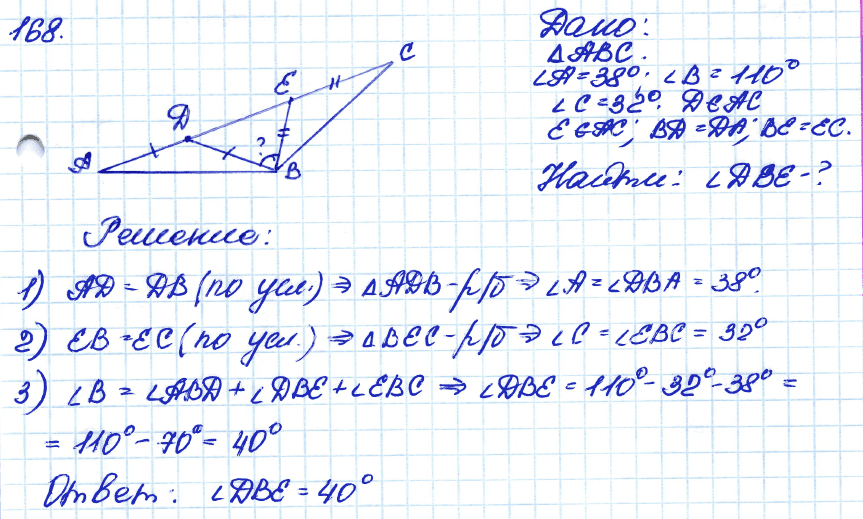 168.
Дано:
△ABC.
∠A = 38°; ∠B = 110°
∠C = 32°. D∈AC
E∈AC; BD = DA; BE = EC.
Найти: ∠DBE - ?
C
E
D
?
A
B
Решение:
1) AD = DB (по усл.) ⇒ △ADB - р/б ⇒ ∠A = ∠DBA = 38°.
2) EB = EC (по усл.) ⇒ △BEC - р/б ⇒ ∠C = ∠EBC = 32°
3) ∠B = ∠ABD + ∠DBE + ∠EBC ⇒ ∠DBE = 110° - 32° - 38° =
= 110° - 70° = 40°
Ответ: ∠DBE = 40°